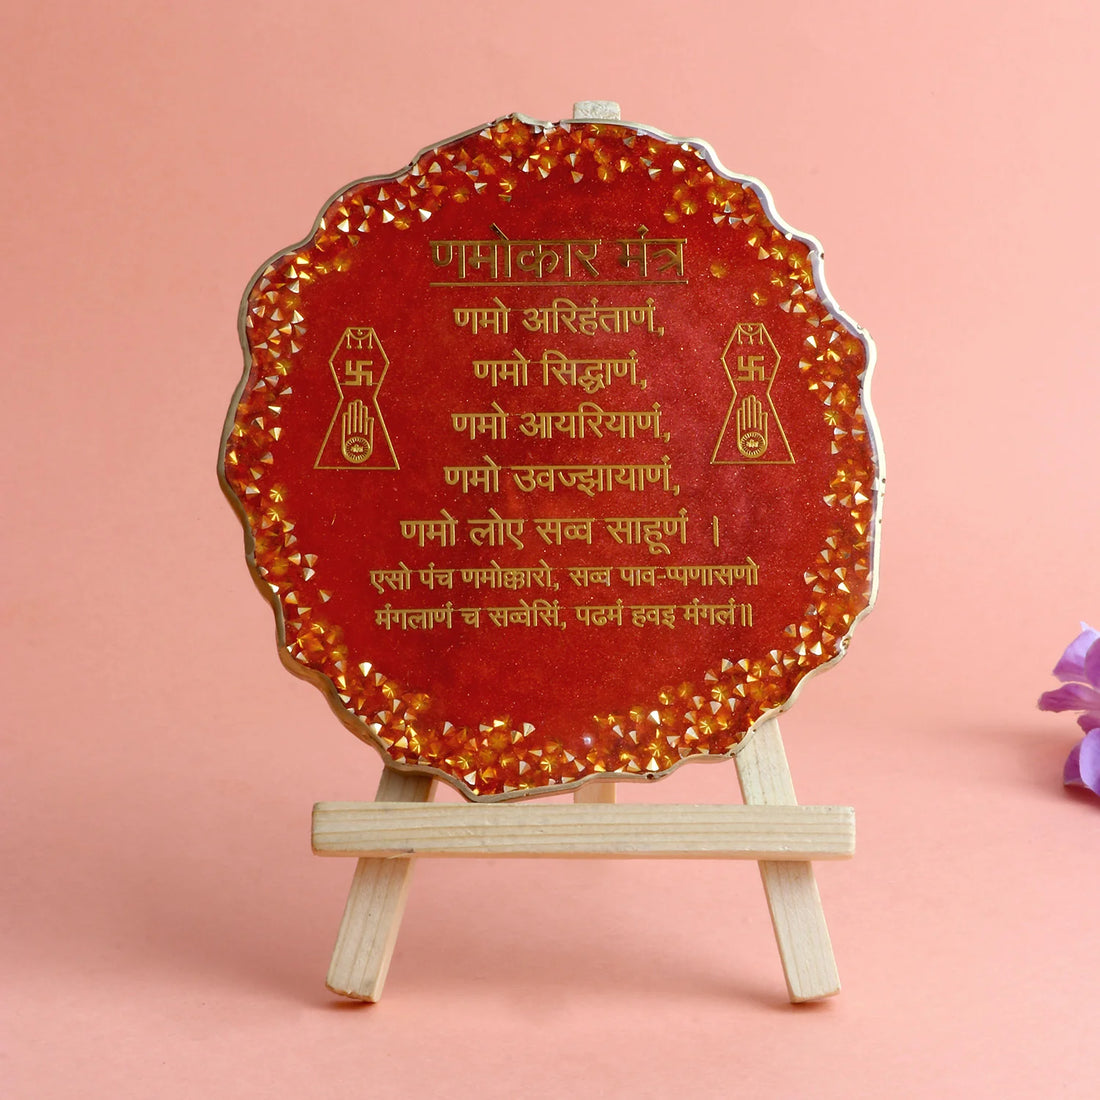 णमोकार मंत्र
णमो अरिहंताणं,
णमो सिद्धाणं,
णमो आयरियाणं,
णमो उवज्झायाणं,
णमो लोए सव्व साहूणं ।
एसो पंच णमोक्कारो, सव्व पाव-प्पणासणो
मंगलाणं च सव्वेसिं, पढमं हवइ मंगलं॥